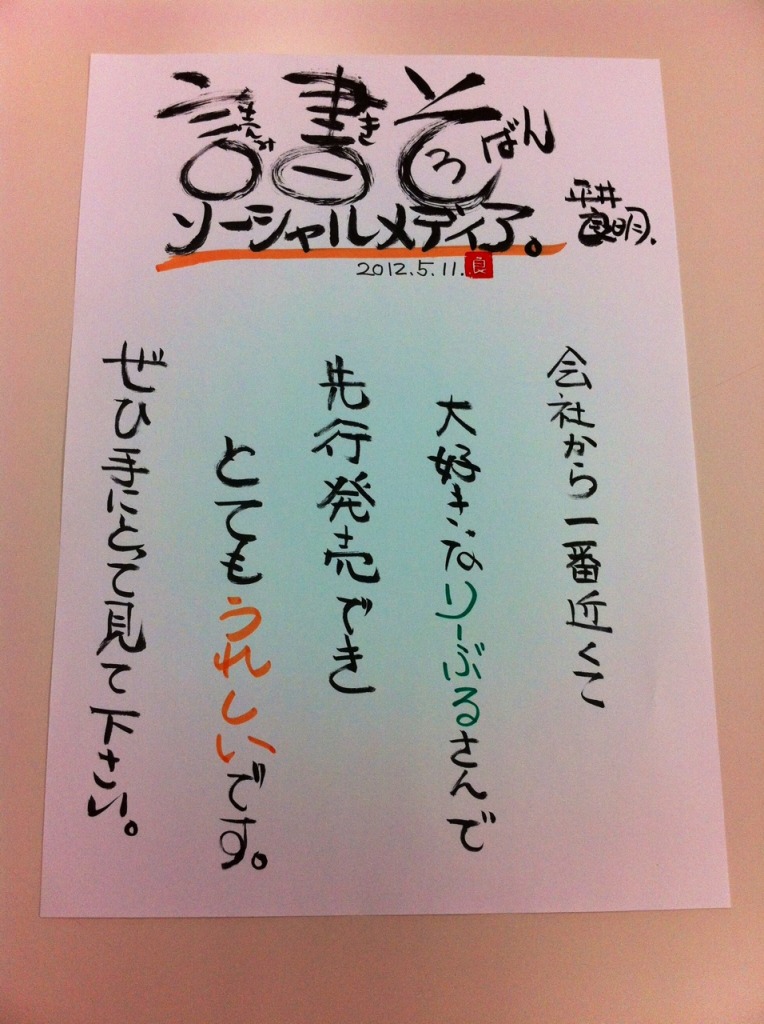 読み書きそろばん
ソーシャルメディア。
平井良明.
2012.5.11.
良
会社から一番近くて
大好きなりーぶるさんで
先行発売でき
とてもうれしいです。
ぜひ手にとって見て下さい。